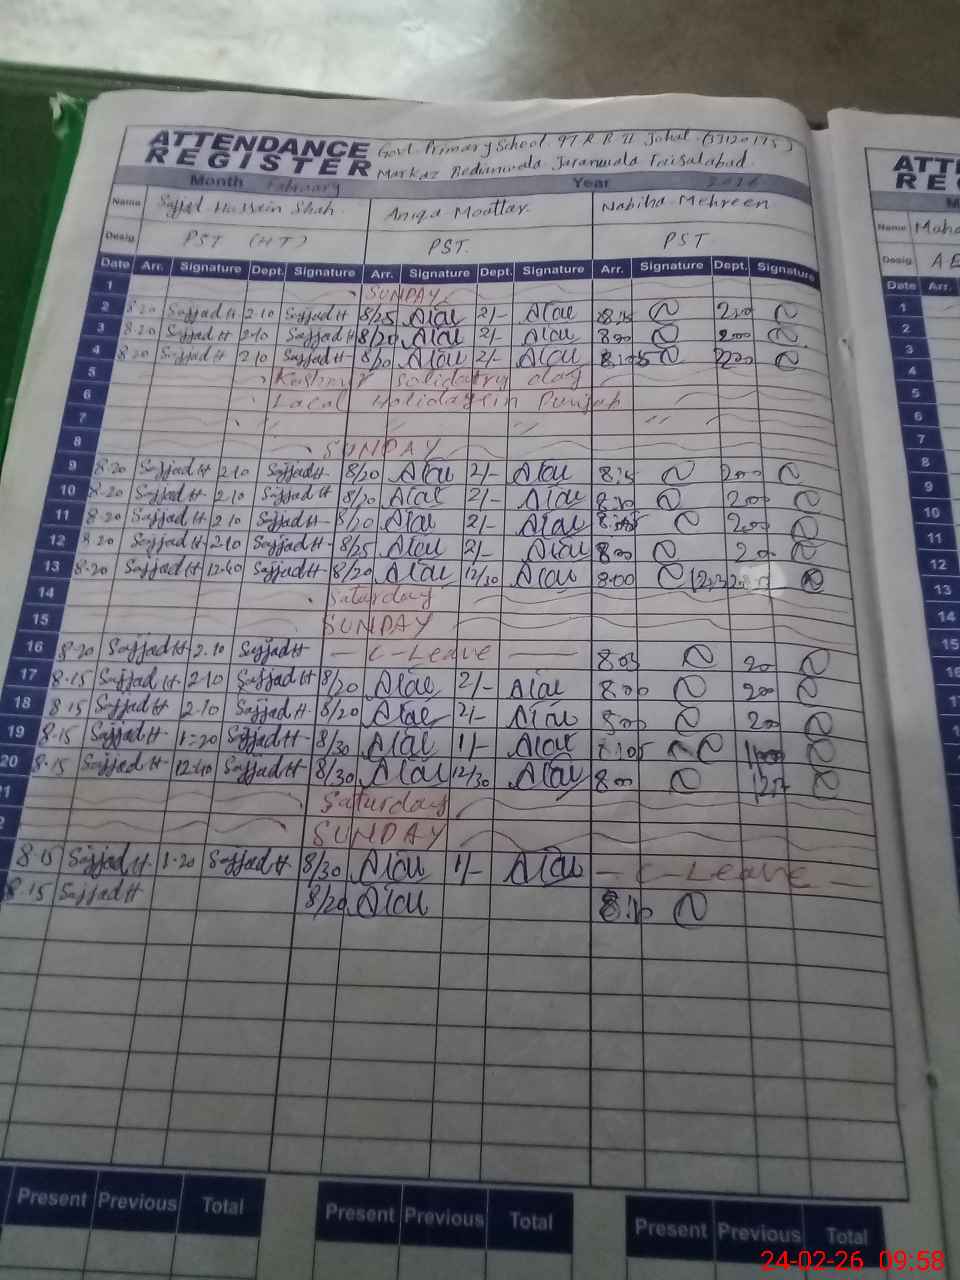 ATTENDANCE REGISTER
Govt. Primary School 97 R B II Johal (33120175)
Markaz Jaranwala Faisalabad.
Month February Year 2026
Name Sajjad Hussain Shah. Aniqa Moattar. Nabiha Mehreen
Desig PST (HT) PST. PST
Date Arr. Signature Dept. Signature Arr. Signature Dept. Signature Arr. Signature Dept. Signature
1 SUNDAY
2 8-20 Sajjad H 2-10 Sajjad H 8/25 2/-
3 8-20 Sajjad H 2-10 Sajjad H 8/20 2/- 800 200
4 8-20 Sajjad H 2-10 Sajjad H 8/20 2/-
5 Kashmir Solidatry day
6 Local Holidays in Punjab
7 " " "
8 SUNDAY
9 8-20 Sajjad H 2-10 Sajjad H- 8/20 2/- 8:15 200
10 8-20 Sajjad H 2-10 Sajjad H 8/20 2/- 200
11 8-20 Sajjad H 2-10 Sajjad H- 8/20 2/- 200
12 8-20 Sajjad H 2-10 Sajjad H- 8/25 2/- 800
13 8-20 Sajjad H 12-40 Sajjad H- 8/20 12/30 8:00
14 Saturday
15 SUNDAY
16 8-20 Sajjad H 2-10 Sajjad H - C-Leave - 8 03
17 8-15 Sajjad H 2-10 Sajjad H 8/20 2/- 800 200
18 8-15 Sajjad H 2-10 Sajjad H- 8/20 2/- 800 200
19 8-15 Sajjad H- 1-20 Sajjad H- 8/30 1/-
20 8-15 Sajjad H 12-40 Sajjad H 8/30 12/30 800
1 Saturday
2 SUNDAY
8-15 Sajjad H- 1-20 Sajjad H- 8/30 1/- - C-Leave -
8-15 Sajjad H 8/20 8:10
Present Previous Total Present Previous Total Present Previous Total
ATT
RE
M
Name Maha
Desig A E
Date Arr.
1
2
3
4
5
6
7
8
9
10
11
12
13
15
16
17
24-02-26 09:58